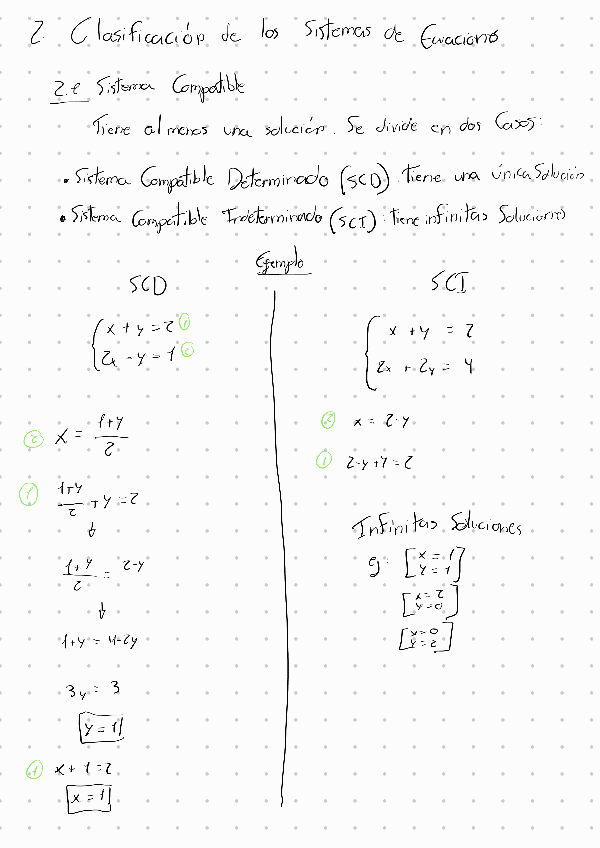 2. Clasificación de los Sistemas de Ecuaciones
2.1 Sistema Compatible
Tiene al menos una solución. Se divide en dos Casos:
• Sistema Compatible Determinado (SCD): tiene una única Solución
• Sistema Compatible Indeterminado (SCI): tiene infinitas Soluciones
Ejemplo
SCD
x + y = 2 ①
2x - y = 1 ②
② x = (1+y)/2
① (1+y)/2 + y = 2
↓
(1+y)/2 = 2-y
↓
1+y = 4-2y
3y = 3
y = 1
① x + 1 = 2
x = 1
SCI
x + y = 2
2x + 2y = 4
② x = 2-y
① 2-y+y = 2
Infinitas Soluciones
[x = 1
y = 1]
[x = 2
y = 0]
[x = 0
y = 2]